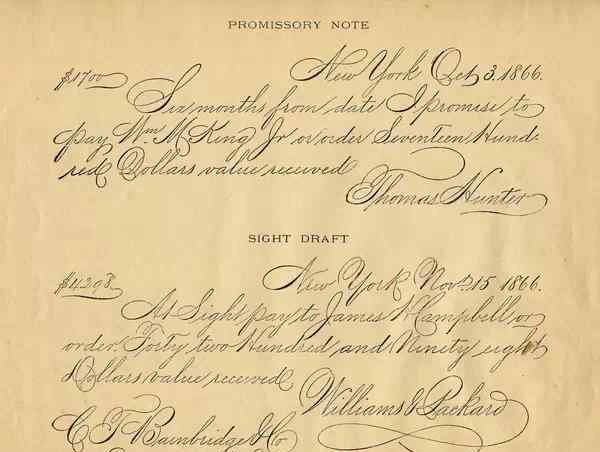 PROMISSORY NOTE
$1700 New York Oct 3. 1866.
Six months from date I promise to
pay Wm. M King Jr or order Seventeen Hund-
red Dollars value received
Thomas Hunter
SIGHT DRAFT
$4298. New York Nov. 15 1866.
At Sight pay to James H Campbell or
order Forty two Hundred and Ninety eight
Dollars value received
Williams & Packard
C. T. Bainbridge & Co